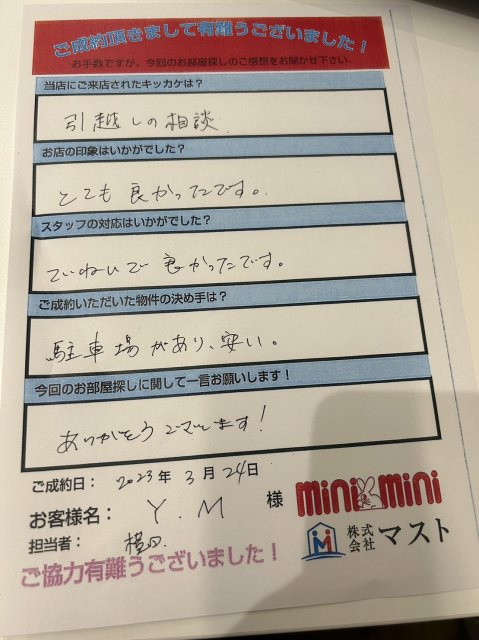 ご成約頂きまして有難うございました！
お手数ですが、今回のお部屋探しのご感想をお聞かせ下さい。
当店にご来店されたキッカケは？
引越しの相談
お店の印象はいかがでした？
とても良かったです。
スタッフの対応はいかがでした？
ていねいで良かったです。
ご成約いただいた物件の決め手は？
駐車場があり、安い。
今回のお部屋探しに関して一言お願いします！
ありがとうございます！
ご成約日： 2023年 3月 24日
お客様名： Y.M 様
mini mini
担当者： 横田
株式会社 マスト
ご協力有難うございました！